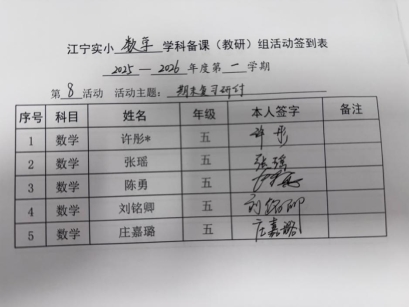 江宁实小 数学 学科备课（教研）组活动签到表
2025—2026年度第一学期
第8活动 活动主题：期末复习研讨
序号 科目 姓名 年级 本人签字 备注
1 数学 许彤* 五 许彤
2 数学 张瑶 五 张瑶
3 数学 陈勇 五
4 数学 刘铭卿 五 刘铭卿
5 数学 庄嘉璐 五 庄嘉璐